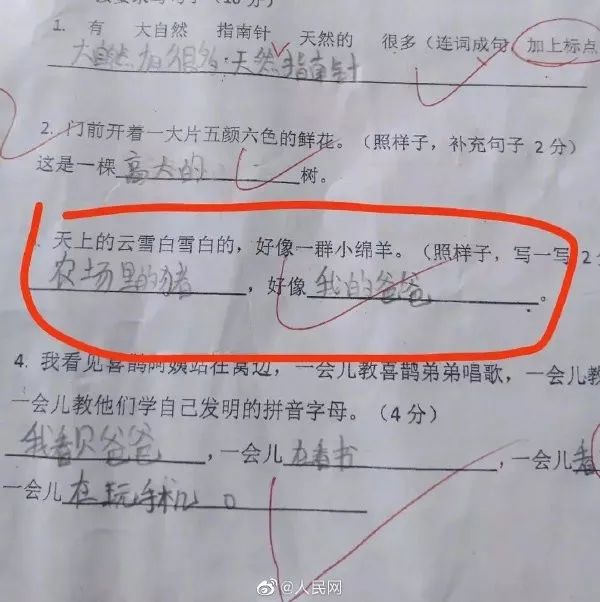 1. 有 大自然 指南针 天然的 很多（连词成句，加上标点
大自然有很多天然指南针
2. 门前开着一大片五颜六色的鲜花。（照样子，补充句子 2 分）
这是一棵高大的树。
天上的云雪白雪白的，好像一群小绵羊。（照样子，写一写 2
农场里的猪，好像我的爸爸。
4. 我看见喜鹊阿姨站在窝边，一会儿教喜鹊弟弟唱歌，一会儿教
一会儿教他们学自己发明的拼音字母。（4 分）
我看见爸爸，一会儿在看书，一会儿
一会儿在玩手机。
@人民网